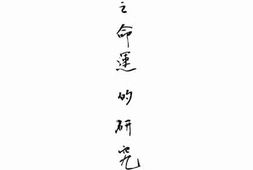 之命運的研究